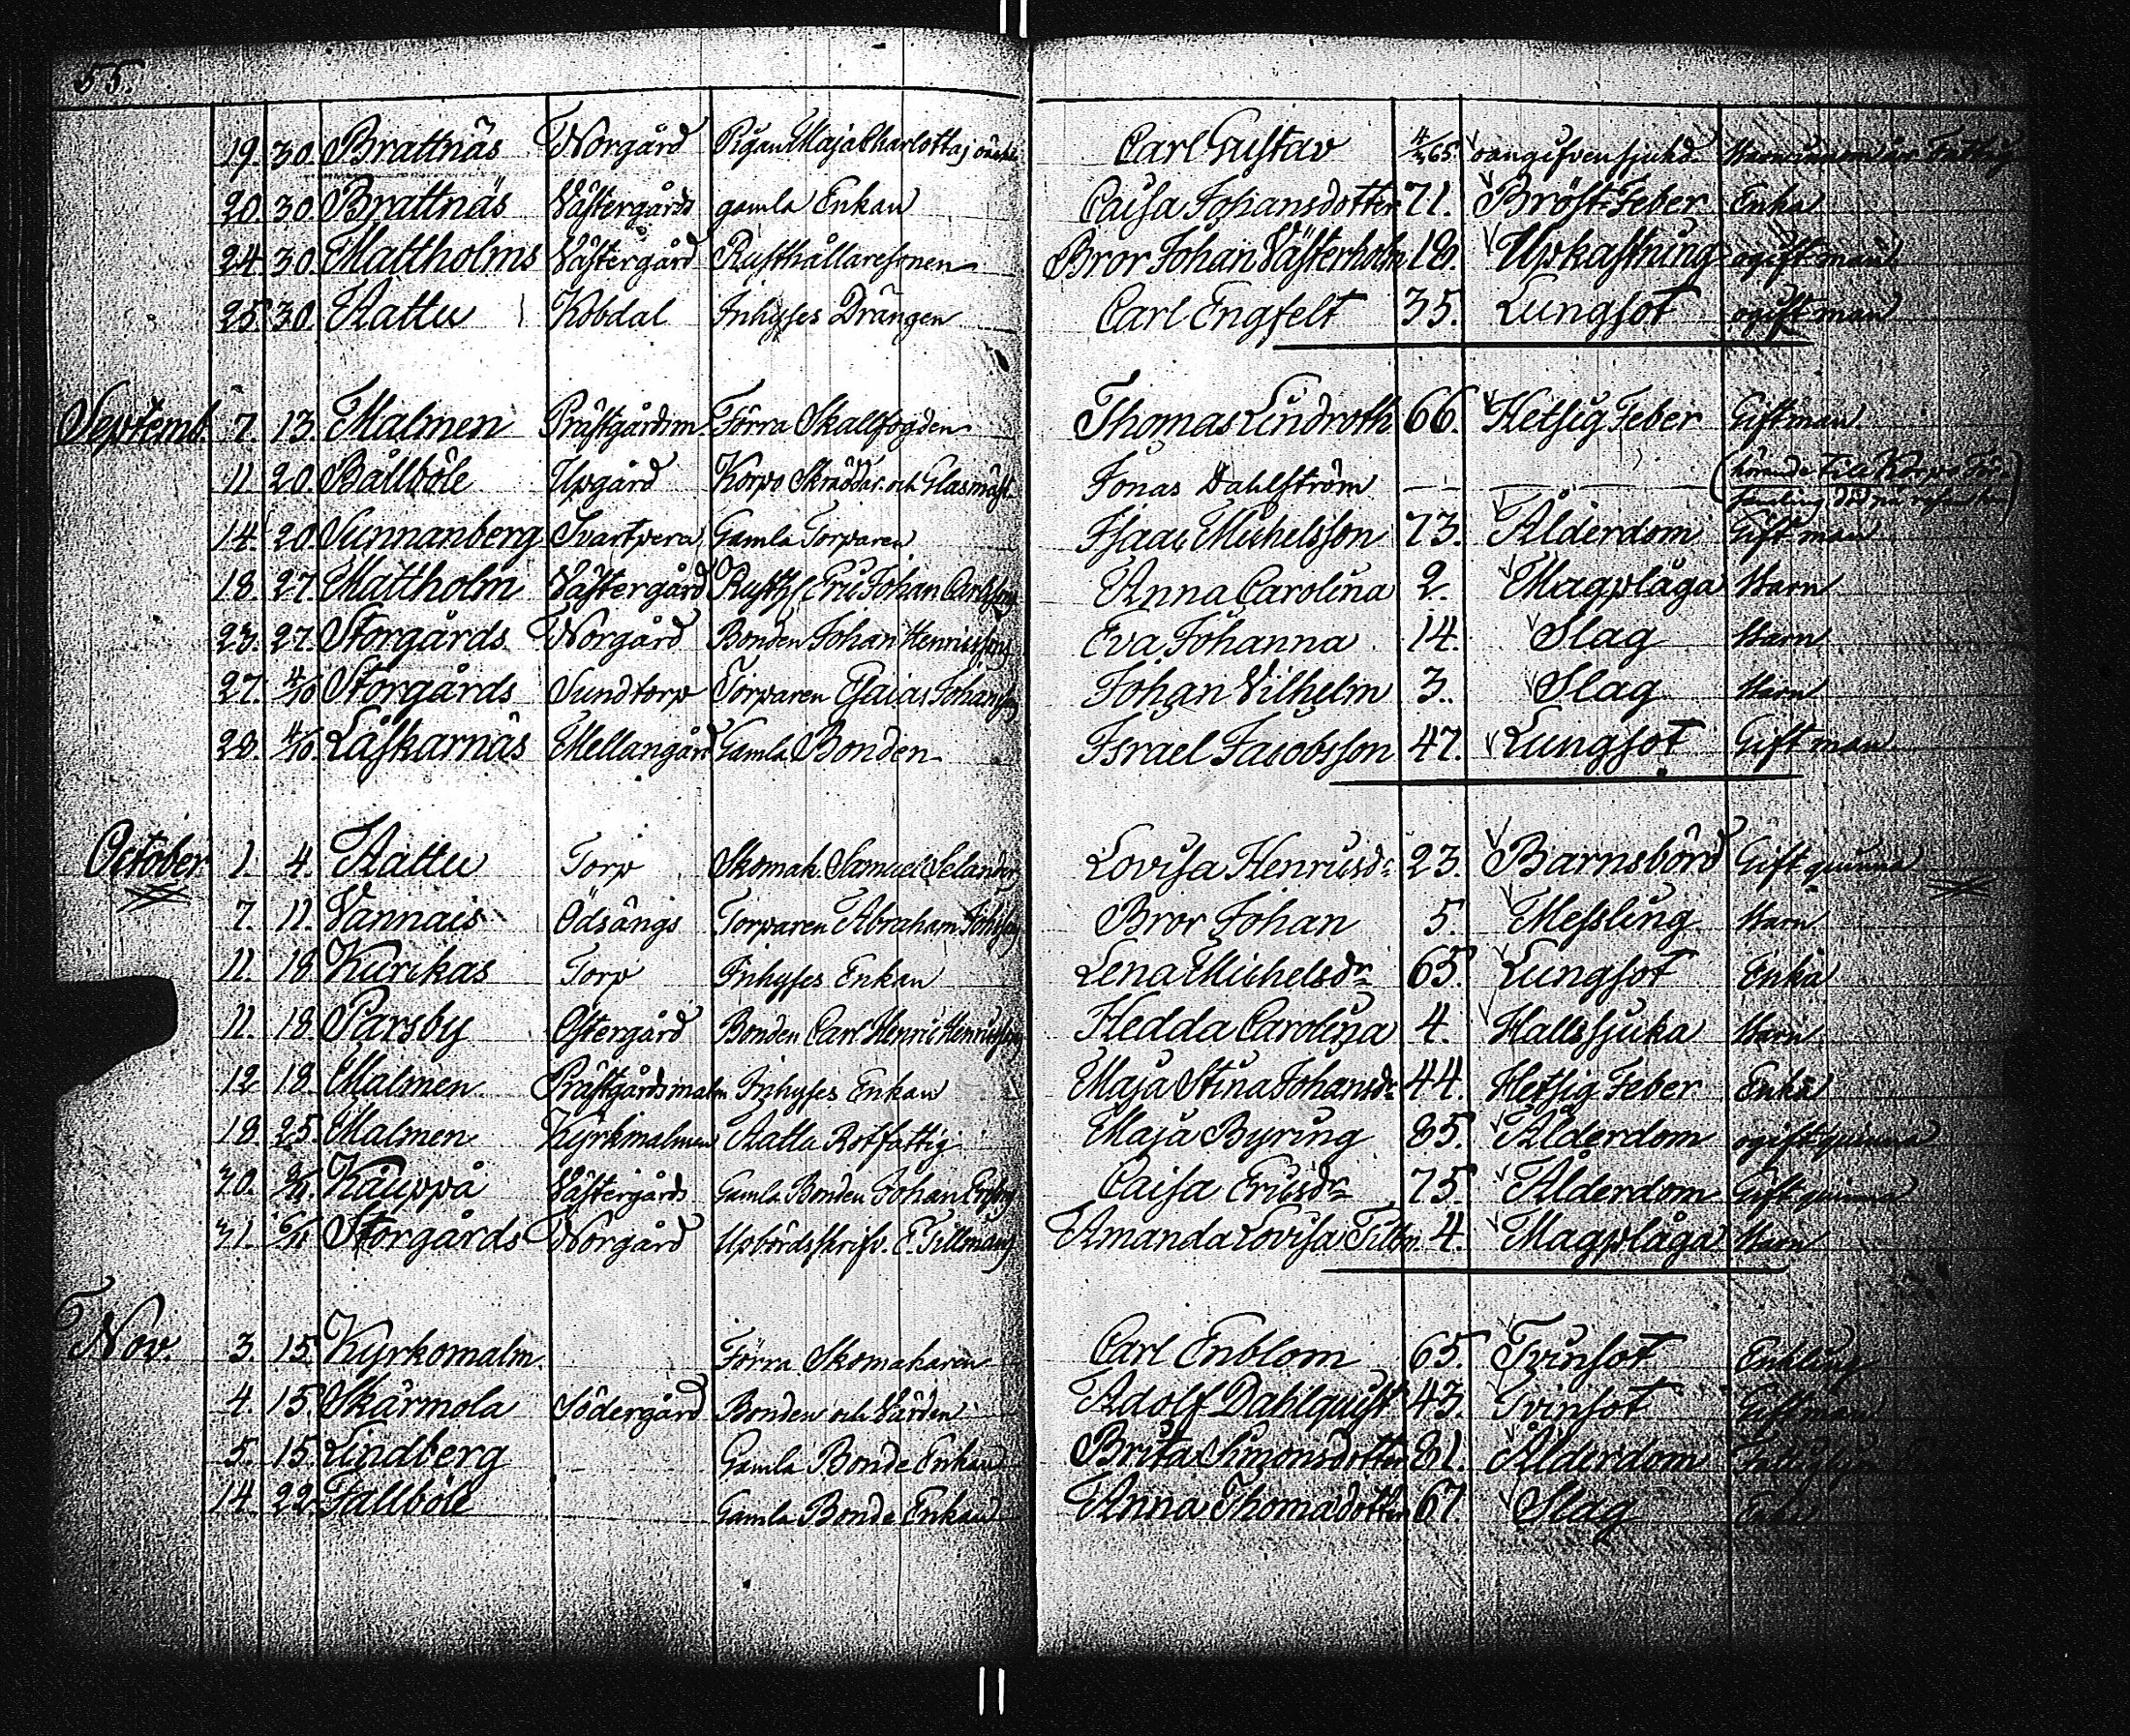 55.
19. 30. Brattnäs Norgård Pigan Maja Charlottas oäkta Carl Gustav 4/2 65. oangifven sjukd. Barn
20. 30. Brattnäs Västergårds gamla Enkan Caisa Johansdotter 71. Bröst-Feber Enka
24. 30. Mattholms Västergård Rusthållaresonen Bror Johan Västerholm 18. Upkastning ogift man
25. 30. Aattu Kobdal Inhyses Drängen Carl Engfelt 35. Lungsot ogift man
Septemb. 7. 13. Malmen Prästgårdsm. Förra Skallfogden Thomas Lindroth 66. Hetsig Feber Gift man
11. 20. Bållböle Upgård Korpo Skräddar. och Glasmäst. Jonas Dahlström — — (hörande till Korpo
14. 20. Sunnanberg Svartpera Gamla Torparen Isaac Michelsson 73. Ålderdom Gift man
18. 27. Mattholm Västergård Rusth. Eric Johan Carlssons Anna Carolina 2. Magplåga Barn
23. 27. Storgårds Norgård Bonden Johan Henricssons Eva Johanna 14. Slag Barn
27. 4/10 Storgårds Sundtorp Torparen Esaias Johanssons Johan Vilhelm 3. Slag Barn
28. 4/10. Låskarnäs Mellangård Gamla Bonden Israel Jacobsson 47. Lungsot Gift man
October 1. 4. Aattu Torp Skomak. Samuel Selanders Lovisa Henricsdr 23. Barnsbörd Gift quinna
7. 11. Vannais Ödsängs Torparen Abraham Johssons Bror Johan 5. Messling Barn
11. 18. Kurckas Torp Inhyses Enkan Lena Michelsdr 65. Lungsot Enka
11. 18. Parsby Östergård Bonden Carl Henric Henricssons Hedda Carolina 4. Hallssjuka Barn
12 18. Malmen Prästgårdsmalm Inhyses Enkan Maja Stina Johansdr 44. Hetsig Feber Enka
18. 25. Malmen Kyrkmalmen Aattu Rotfattig Maja Byring 85. Ålderdom ogift quinna
30. 8/11. Kåuppå Västergårds Gamla Bonden Johan Ersons Caisa Ericsdr 75. Ålderdom Gift quinna
31. Storgårds Norgård Upbördsskrifv. E. Tillmans Amanda Lovisa Tillm. 4. Magplåga Barn
Nov. 3. 15. Kyrkomalm. Förra Skomakaren Carl Enblom 65. Tvinsot Enkling
4. 15. Skärmola Södergård Bonden och Värden Adolf Dahlquist 43. Tvinsot Gift man
5. 15. Lindberg Gamla Bonde Enkan Brita Simonsdotter 81. Ålderdom
14. 22. Tallböle Gamla Bonde Enkan Anna Thomasdotter 67. Slag Enka